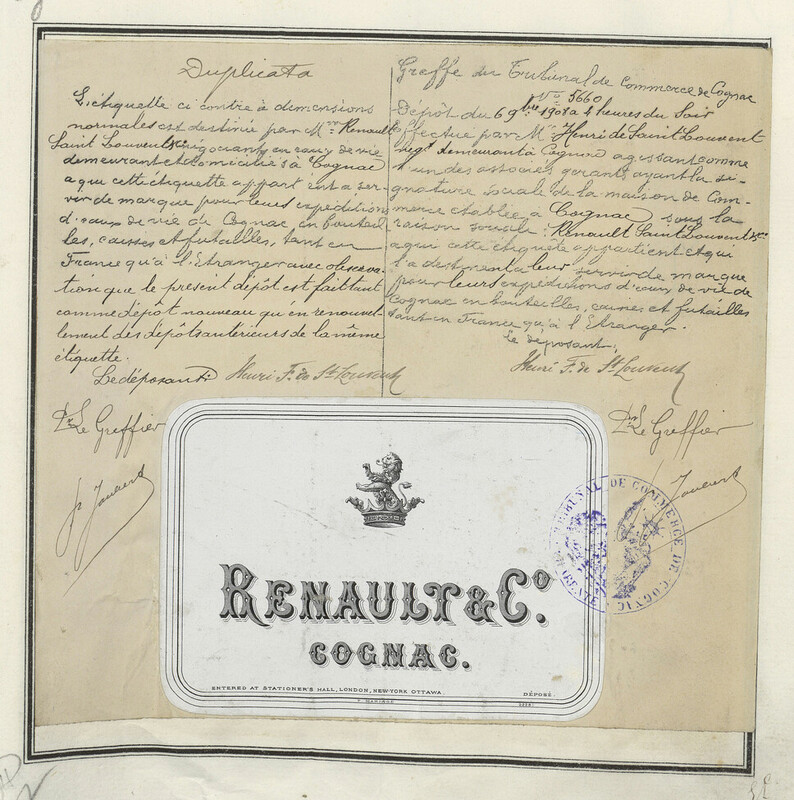 Duplicata
L'étiquette ci contre à dimensions
normales est destinée par Mrs Renault
Saint Louvent & Cie négociants en eaux de vie
demeurant et domiciliés à Cognac
a qui cette étiquette appartient a ser-
vir de marque pour leurs expéditions
d'eaux de vie de Cognac en bouteil-
les, caisses et futailles, tant en
France qu'à l'Etranger avec observa-
tion que le présent dépôt est fait tant
comme dépôt nouveau qu'en renouvel-
lement des dépôts antérieurs de la même
étiquette.
Le déposant: Henri F. de St Louvent
Pr Le Greffier
Greffe du Tribunal de Commerce de Cognac
No 5660
Dépôt du 6 9bre 1908 à 4 heures du Soir
Effectué par Mr Henri de Saint Louvent
négt demeurant à Cognac agissant comme
un des associés gérants ayant la si-
gnature sociale de la maison de Com-
merce établie à Cognac sous la
raison sociale: Renault Saint Louvent & Cie
a qui cette étiquète appartient et qui
l'a destinent a leur servir de marque
pour leurs expéditions d'eaux de vie de
Cognac en bouteilles, caisses et futailles
tant en France qu'à l'Etranger.
Le déposant,
Henri F. de St Louvent
Pr Le Greffier
RENAULT & Co.
COGNAC.
ENTERED AT STATIONER'S HALL, LONDON, NEW-YORK OTTAWA.
DÉPOSÉ
TRIBUNAL DE COMMERCE DE COGNAC